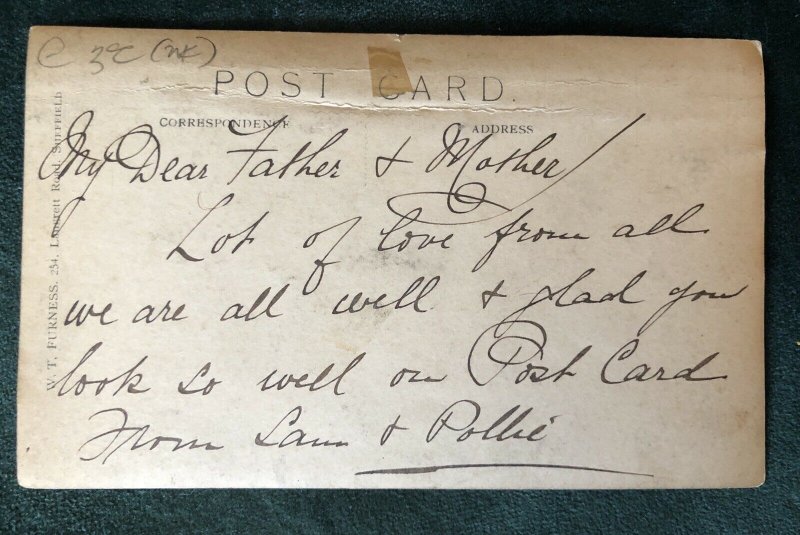 e 3c (nk)
POST CARD.
CORRESPONDENCE
ADDRESS
My Dear Father & Mother
Lot of love from all
we are all well & glad you
look so well on Post Card
From Sam & Pollie
W. T. FURNESS. 254, Langsett Road, SHEFFIELD